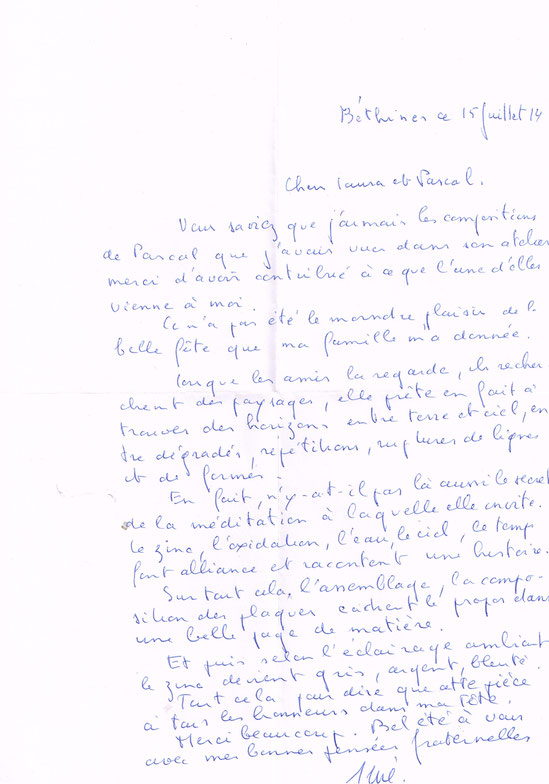 Béthines ce 15 juillet 14
Chers Laura et Pascal.
Vous saviez que j'aimais les compositions
de Pascal que j'avais vues dans son atelier
merci d'avoir contribué à ce que l'une d'elles
vienne à moi.
Ce n'a pas été le moindre plaisir de la
belle fête que ma famille m'a donnée.
Lorsque les amis la regarde, ils recher-
chent des paysages, elle prête en fait à
trouver des horizons entre terre et ciel, en-
tre dégradés, répétitions, ruptures de lignes
et de formes.
En fait, n'y-at-il pas là aussi le secret
de la méditation à laquelle elle invite.
Le zinc, l'oxidation, l'eau, le ciel, le temps
font alliance et racontent une histoire.
Surtout cela, l'assemblage, la compo-
sition des plaques cachent le propos dans
une belle page de matière.
Et puis selon l'éclairage ambiant
le zinc devient gris, argent, bleuté.
Tout cela pour dire que cette pièce
a tous les honneurs dans ma tête.
Merci beaucoup. Bel été à vous
avec mes bonnes pensées fraternelles